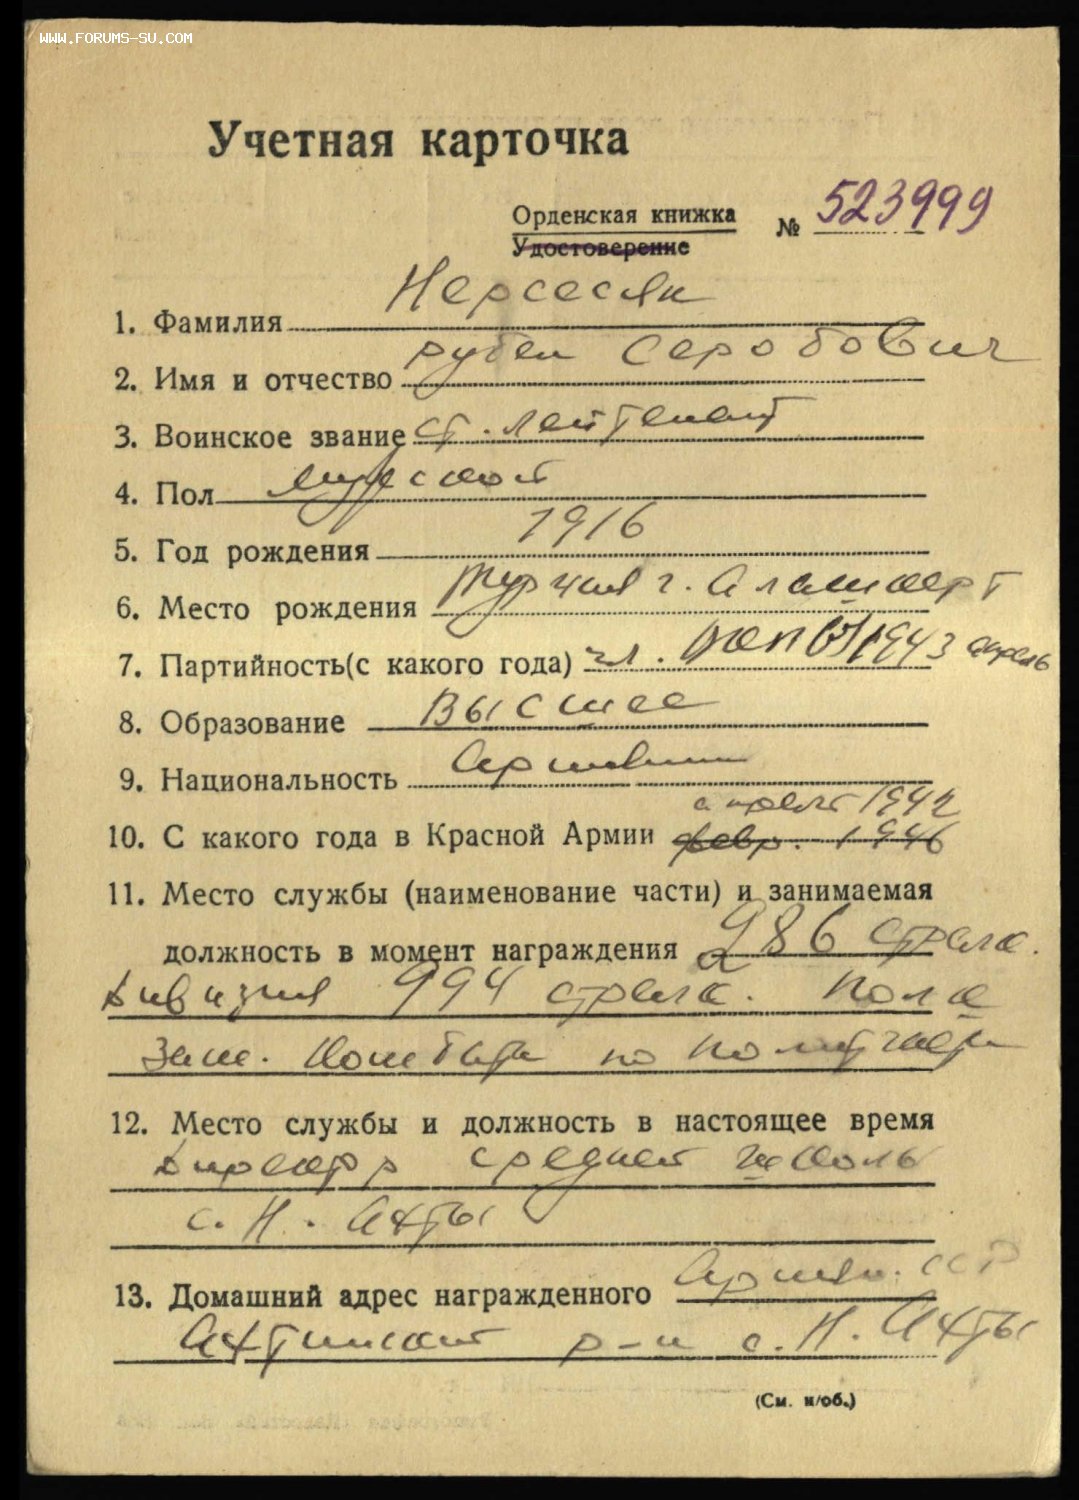 WWW.FORUMS-SU.COM
Учетная карточка
Орденская книжка № 523999
Удостоверение
1. Фамилия Нерсесян
2. Имя и отчество Рубен Серобович
3. Воинское звание ст. лейтенант
4. Пол мужской
5. Год рождения 1916
6. Место рождения Турция г. Алашкерт
7. Партийность (с какого года) чл. ВКП(б) 1943 апрель
8. Образование Высшее
9. Национальность Армянин
апрель 1942
10. С какого года в Красной Армии февр. 1946
11. Место службы (наименование части) и занимаемая
должность в момент награждения 286 стрелк.
дивизия 994 стрелк. полк
Зам. Ком по
12. Место службы и должность в настоящее время
Директор средней школы
с. Н. Ахты
13. Домашний адрес награжденного Армян. ССР
Ахтинский р-н с. Н. Ахты
(См. н/об.)